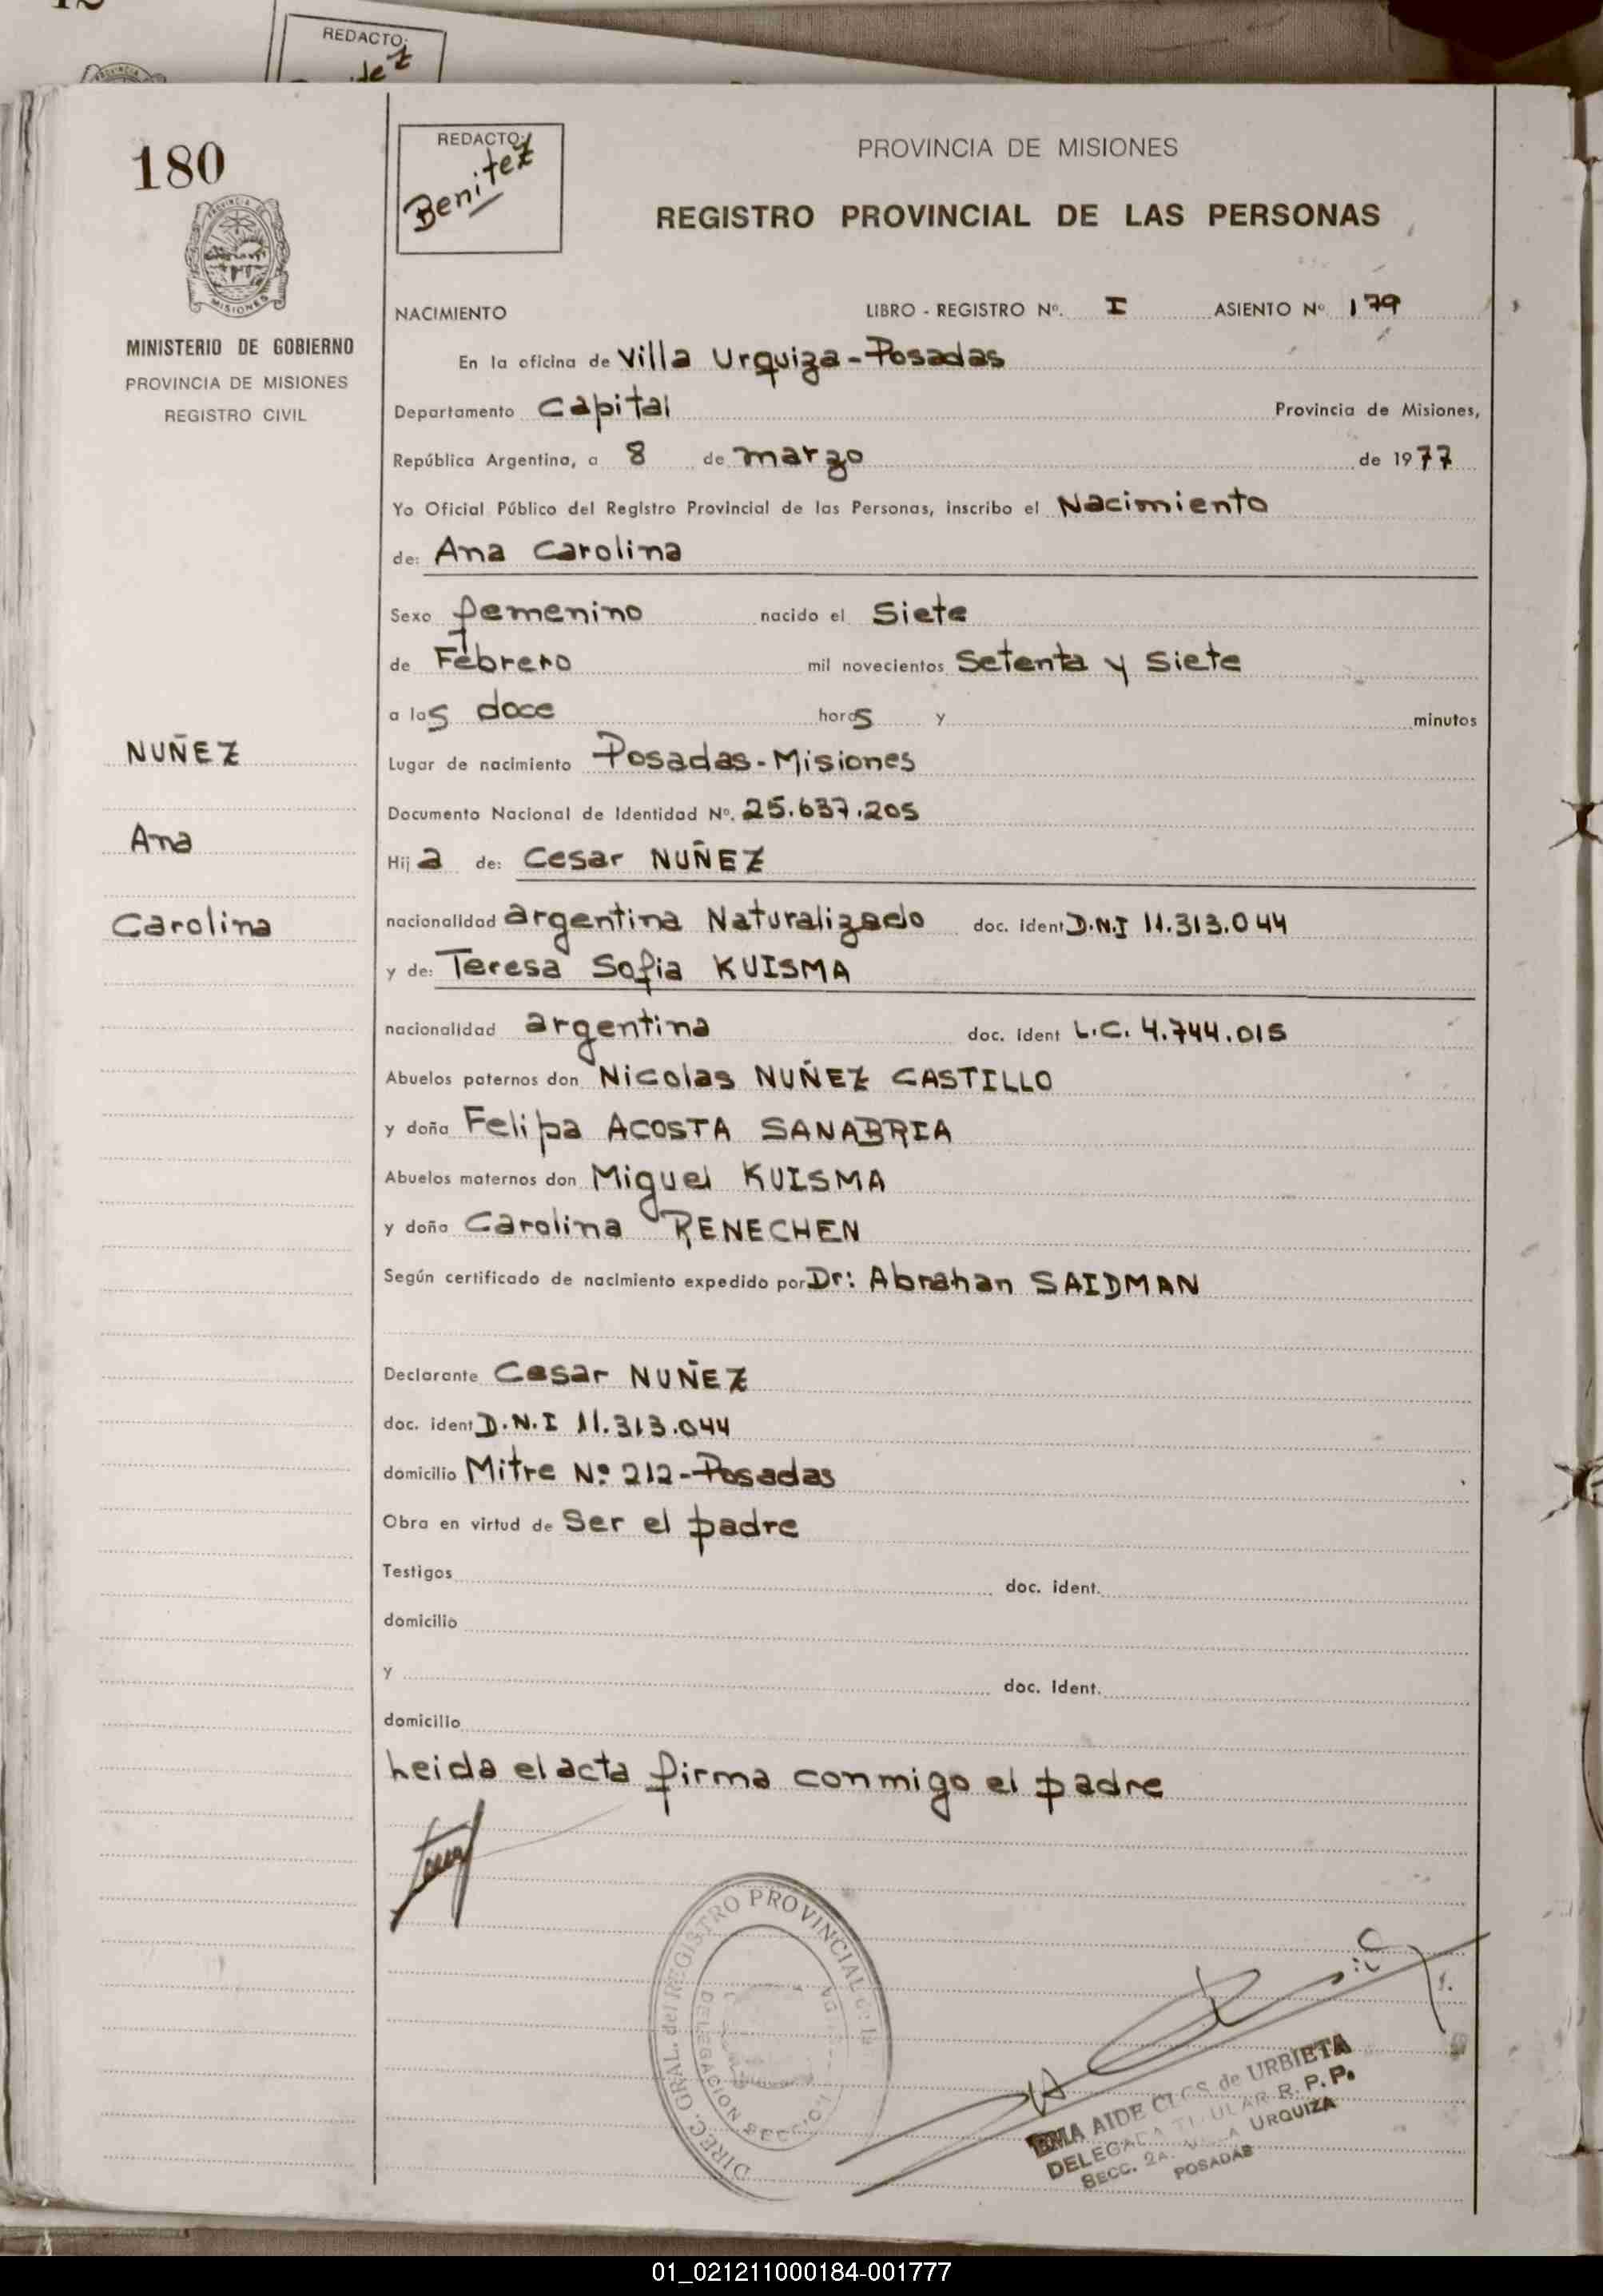 REDACTO:
180
REDACTO:
Benitez
PROVINCIA DE MISIONES
REGISTRO PROVINCIAL DE LAS PERSONAS
MISIONES
MINISTERIO DE GOBIERNO
PROVINCIA DE MISIONES
REGISTRO CIVIL
NACIMIENTO LIBRO - REGISTRO Nº. I ASIENTO Nº 179
En la oficina de Villa Urquiza - Posadas
Departamento Capital Provincia de Misiones,
República Argentina, a 8 de marzo de 1977
Yo Oficial Público del Registro Provincial de las Personas, inscribo el Nacimiento
de: Ana Carolina
Sexo femenino nacido el Siete
de Febrero mil novecientos Setenta y Siete
a las doce horas y minutos
NUÑEZ
Lugar de nacimiento Posadas - Misiones
Documento Nacional de Identidad Nº. 25.637.205
Ana
Hija de: Cesar NUÑEZ
Carolina
nacionalidad argentina Naturalizado doc. ident D.N.I 11.313.044
y de: Teresa Sofia KUISMA
nacionalidad argentina doc. ident L.C. 4.744.015
Abuelos paternos don Nicolas NUÑEZ CASTILLO
y doña Felipa ACOSTA SANABRIA
Abuelos maternos don Miguel KUISMA
y doña Carolina RENECHEN
Según certificado de nacimiento expedido por Dr: Abrahan SAIDMAN
Declarante Cesar NUÑEZ
doc. ident D.N.I 11.313.044
domicilio Mitre Nº 212 - Posadas
Obra en virtud de Ser el padre
Testigos doc. ident.
domicilio
y doc. ident.
domicilio
Leida el acta firma conmigo el padre
DIREC. GRAL. del REGISTRO PROVINCIAL de la
DELEGACION SECCION
AIDE de URBIETA
DELEGADA TITULAR R. P. P.
SECC. 2A. VILLA URQUIZA
POSADAS
01_021211000184-001777